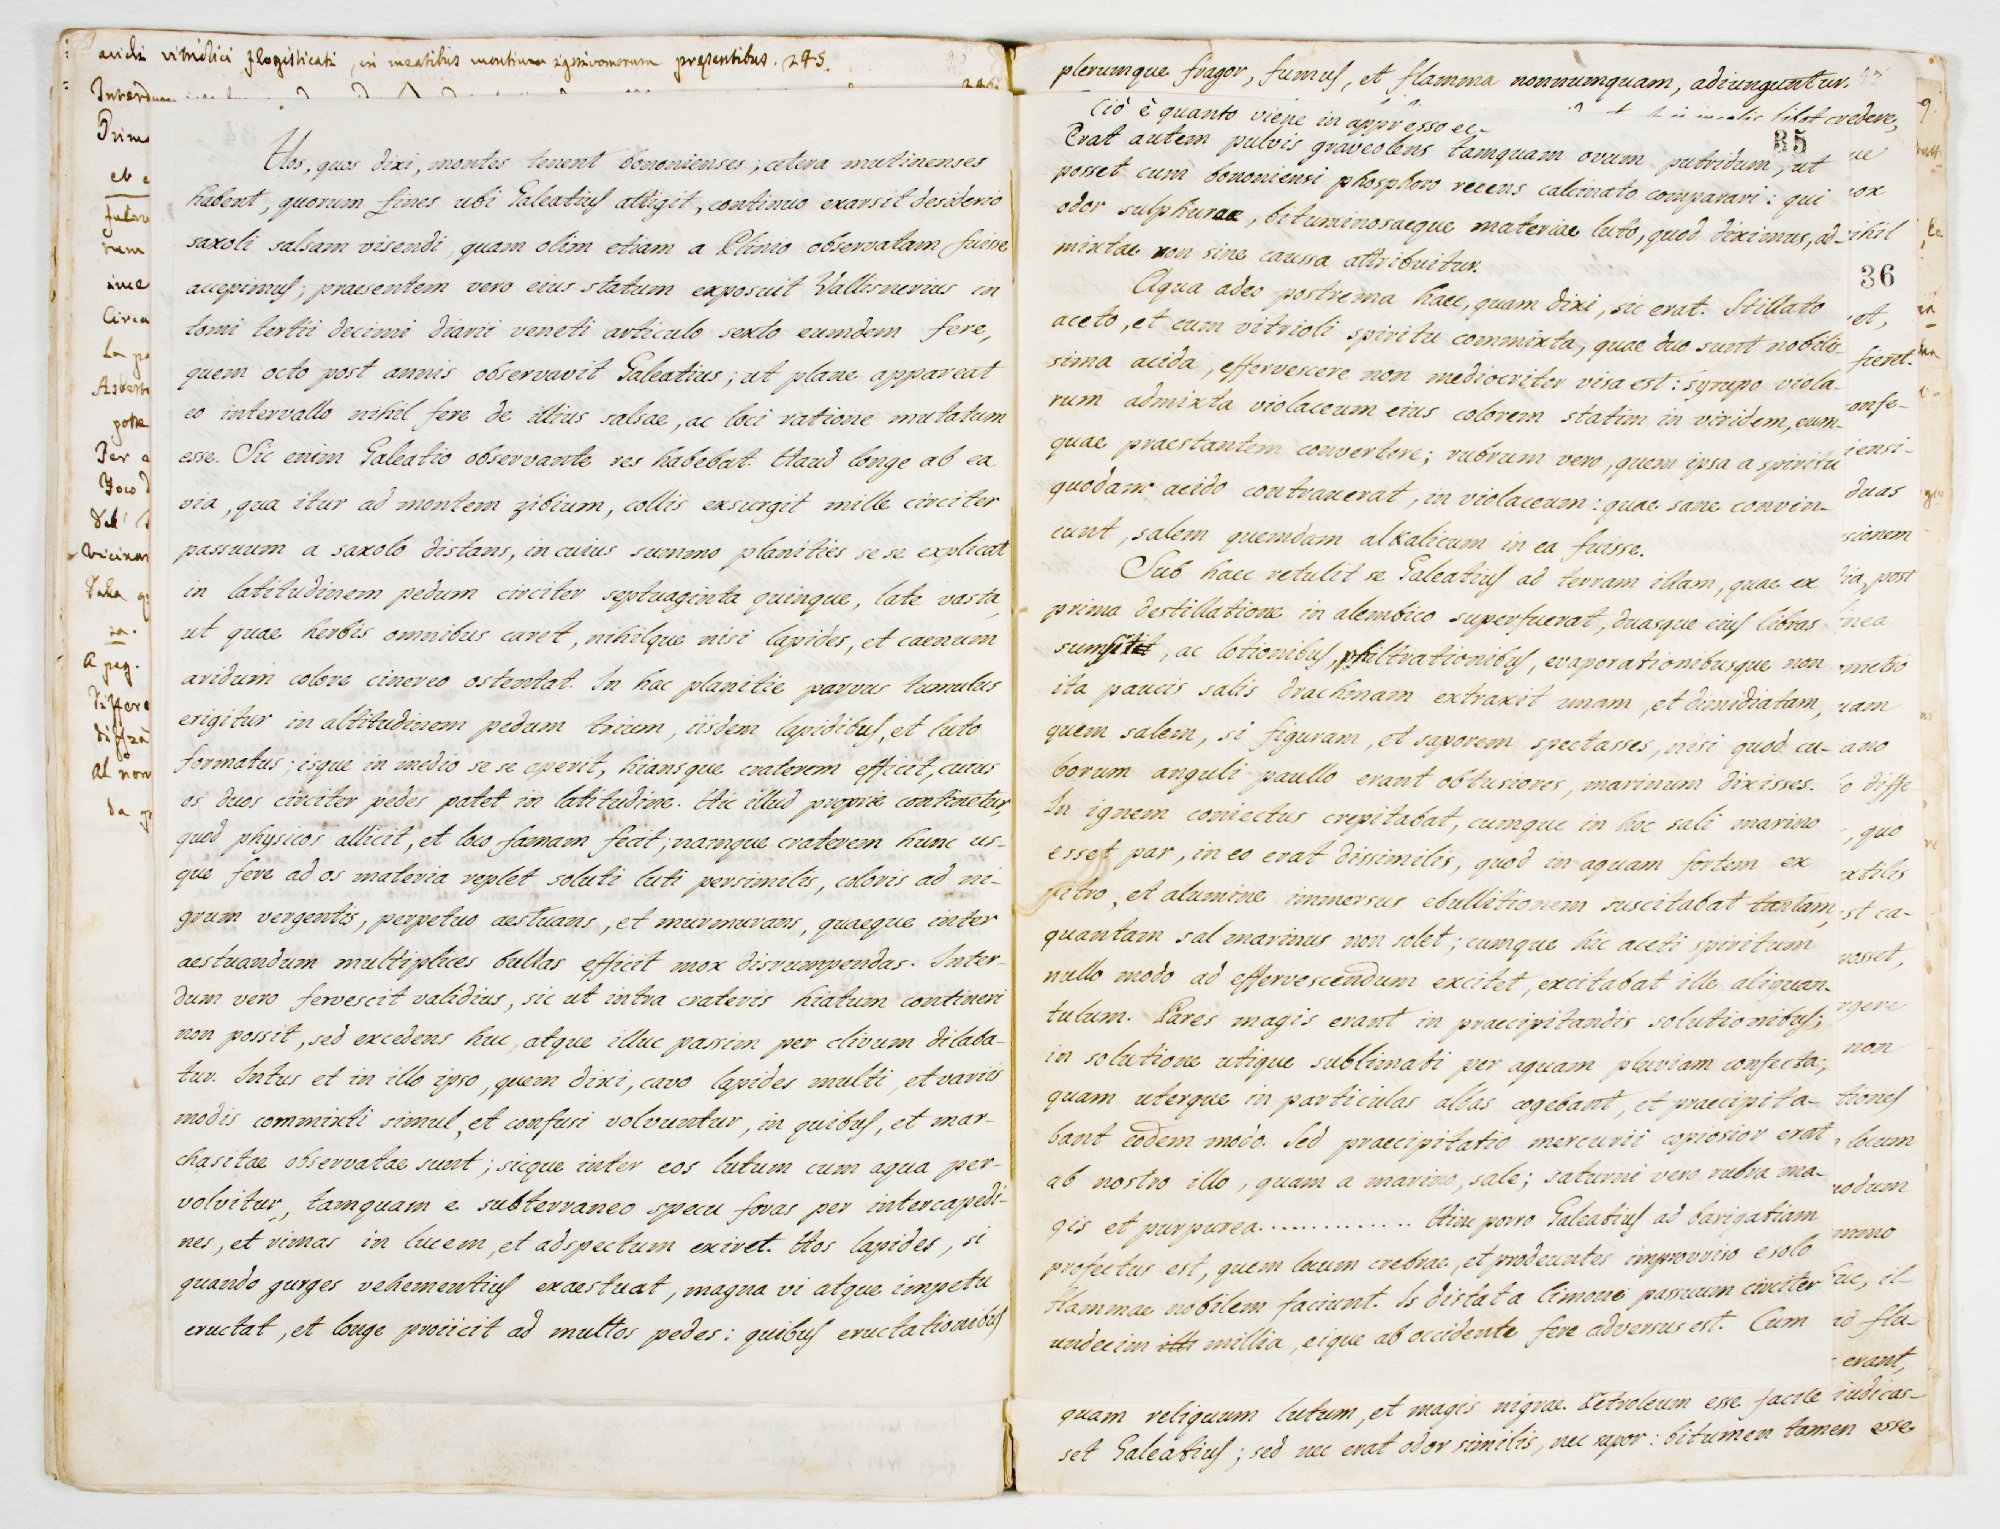 acidi vitriolici flogisticati, in meatibus montium ignivomorum presentibus. 245.
246
Prim
et
Circa
La
pote
Per
Poco
Vicina
A pag.
differe
Al non
da
Hos, quos dixi, montes tenent bononienses; cetera mutinenses
habent, quorum fines ubi Galeatius attigit, continuo exarsit desiderio
saxoli salsam visendi, quam olim etiam a Plinio observatam fuisse
accepimus; praesentem vero eius statum exposuit Vallisnerius in
tomi tertii decimi diarii veneti articulo sexto eumdem fere,
quem octo post annis observavit Galeatius; ut plane appareat
eo intervallo nihil fere de illius salsae, ac loci ratione mutatum
esse. Sic enim Galeatio observante res habebat. Haud longe ab ea
via, qua itur ad montem zibium, collis exsurgit mille circiter
passuum a saxolo distans, in cuius summo planities se se explicat
in latitudinem pedum circiter septuaginta quinque, late vasta,
ut quae herbis omnibus caret, nihilque nisi lapides, et caenum
aridum colore cinereo ostentat. In hac planitie parvus tumulus
erigitur in altitudinem pedum trium, iisdem lapidibus, et luto
formatus; isque in medio se se aperit, hiansque craterem efficit, cuius
os duos circiter pedes patet in latitudine. Hic illud proprie continetur,
quod physicos allicit, et loco famam fecit; namque craterem hunc us-
que fere ad os materia replet soluti luti persimilis, coloris ad ni-
grum vergentis, perpetuo aestuans, et murmurans, quaeque inter
aestuandum multiplices bullas efficit mox disrumpendas. Inter-
dum vero fervescit validius, sic ut intra crateris hiatum contineri
non possit, sed excedens huc, atque illuc passim per clivum dilaba-
tur. Intus et in illo ipso, quem dixi, cavo lapides multi, et variis
modis commixti simul, et confusi volvuntur, in quibus, et mar-
chasitae observatae sunt; sicque inter eos lutum cum aqua per-
volvitur, tamquam e subterraneo specu foras per intercapedi-
nes, et rimas in lucem, et adspectum exiret. Hos lapides, si
quando gurges vehementius exaestuat, magna vi atque impetu
eructat, et longe proiicit ad multos pedes: quibus eructationibus
plerumque fragor, fumus, et flamma nonnumquam, adiunguntur.
Ciò è quanto viene in appresso ec.
credere,
35
Erat autem pulvis graveolens tamquam ovum putridum, ut
posset cum bononiensi phosphoro recens calcinato comparari: qui
odor sulphurae, bituminosaeque materiae luto, quod diximus, ad-
mixtae non sine caussa attribuitur.
Aqua adeo postrema haec, quam dixi, sic erat. Stillato
aceto, et cum vitrioli spiritu commixta, quae duo sunt nobilis-
sima acida, effervescere non mediocriter visa est: syrupo viola-
rum admixta violaceum eius colorem statim in viridem, eum-
quae praestantem convertere; rubrum vero, quem ipsa a spiritu
quodam acido contraxerat, in violaceum: quae sane convin-
cunt, salem quemdam alkalicum in ea fuisse.
Sub haec retulit se Galeatius ad terram illam, quae ex
prima destillatione in alembico superfuerat, duasque eius libras
sumsit, ac lotionibus, philtrationibus, evaporationibusque non
ita paucis salis drachmam extraxit unam, et dimidiatam,
quem salem, si figuram, et saporem spectasses, nisi quod cu-
borum anguli paullo erant obtusiores, marinum dixisses.
In ignem coniectus crepitabat, cumque in hoc sali marino
esset par, in eo erat dissimilis, quod in aquam fortem ex
nitro, et alumine immersus ebullitionem suscitabat tantam,
quantam sal marinus non solet; cumque hic aceti spiritum
nullo modo ad effervescendum excitet, excitabat ille aliquan-
tulum. Pares magis erant in praecipitandis solutionibus;
in solutione utique sublimati per aquam pluviam confecta;
quam uterque in particulas albas cogebant, et praecipita-
bant eodem modo. Sed praecipitatio mercurii copiosior erat
ab nostro illo, quam a marino, sale; saturni vero rubra ma-
gis et purpurea.............. Hinc porro Galeatius ad barigatiam
profectus est, quem locum crebrae, et prodeuntes improvviso e solo
flammae nobilem faciunt. Is distat a limone passuum circiter
undecim illi millia, eique ab occidente fere adversus est. Cum
quam reliquum lutum, et magis nigrae. Petroleum esse facile iudicas-
set Galeatius; sed nec erat odor similis, nec sapor: bitumen tamen esse
36
fieret.
onfe-
iensi-
duas
sionem
post
metro
ano
diffe-
, quo
st ca-
posset,
non
tiones
locum
modum
ad flu-
erant,